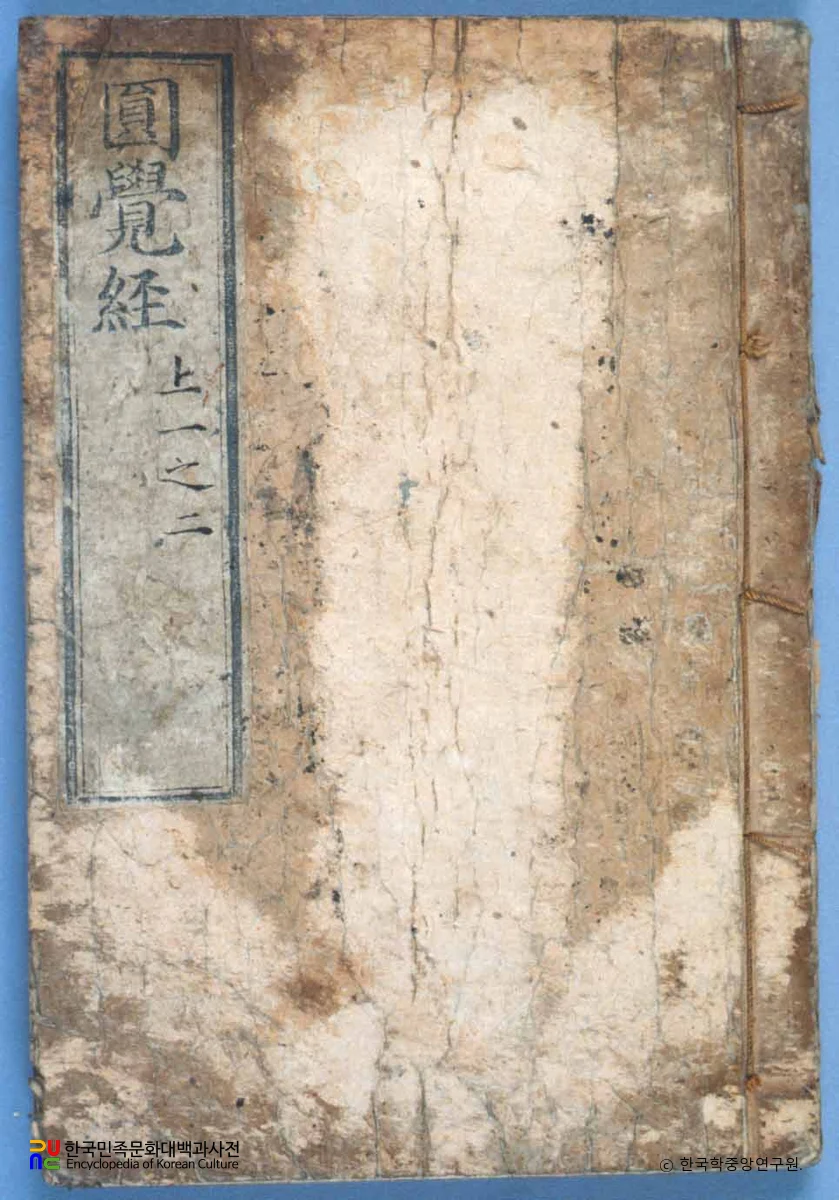 圓覺經
上一之二
한국민족문화대백과사전
Encyclopedia of Korean Culture
ⓒ 한국학중앙연구원.